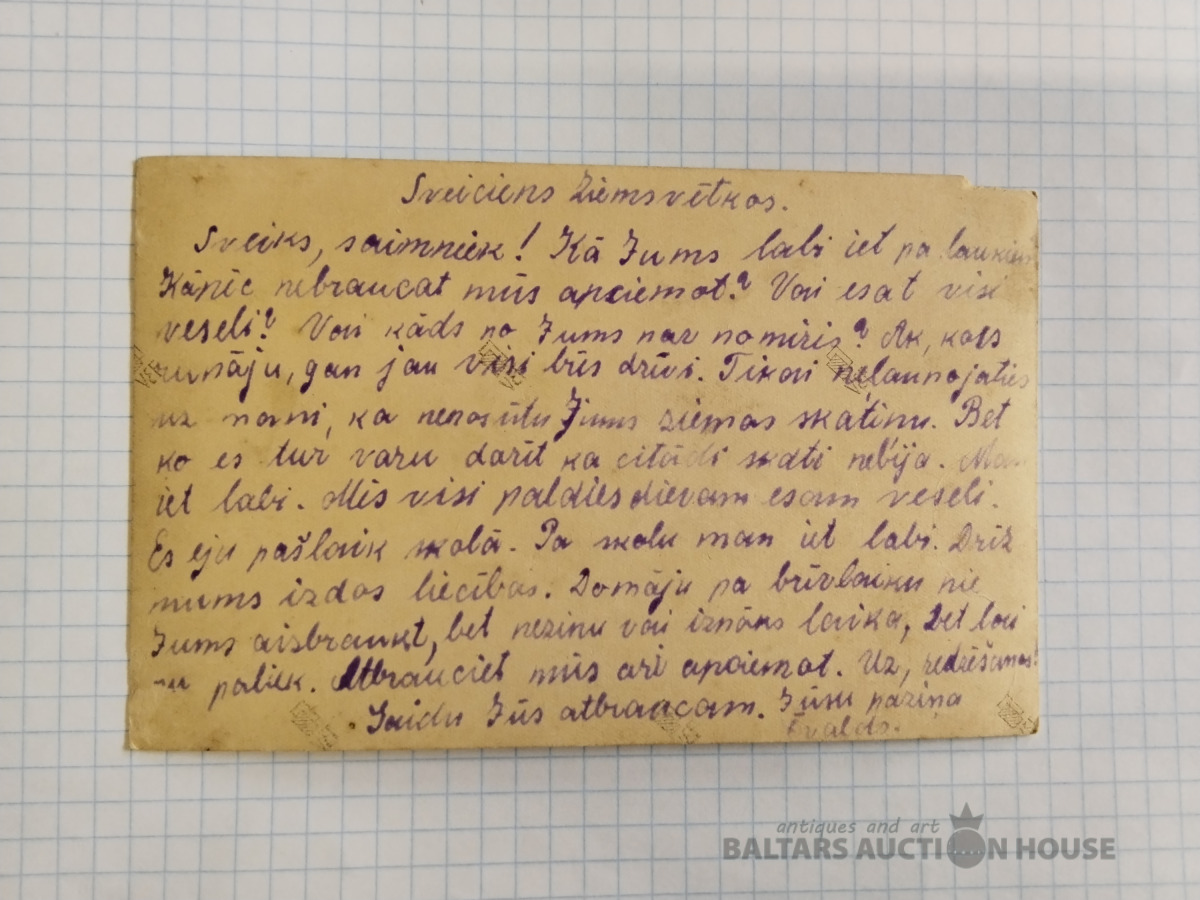 Sveiciens Ziemsvētkos.
Sveiks, saimniek! Kā Jums labi iet pa laukiem
Kāpēc nebraucat mūs apciemot? Vai esat visi
veseli? Vai kāds no Jums nav nomiris? Ak, kas
gan jau visi būs dzīvi. Tikai neļaunojaties
uz mani, ka nenosūtu Jums ziemas skatiņu. Bet
ko es tur varu darīt ka citādi skati nebija. Man
iet labi. Mēs visi paldies dievam esam veseli.
Es eju pašlaik skolā. Pa skolu man iet labi. Drīz
mums izdos liecības. Domāju pa brīvlaiku pie
Jums aizbraukt, bet nezinu vai iznāks laika, bet lai
nu paliek. Atbrauciet mūs arī apciemot. Uz, redzēšanos!
Gaidu Jūs atbraucam. Jūsu paziņa
Ēvalds.
antiques and art
BALTARS AUCTION HOUSE